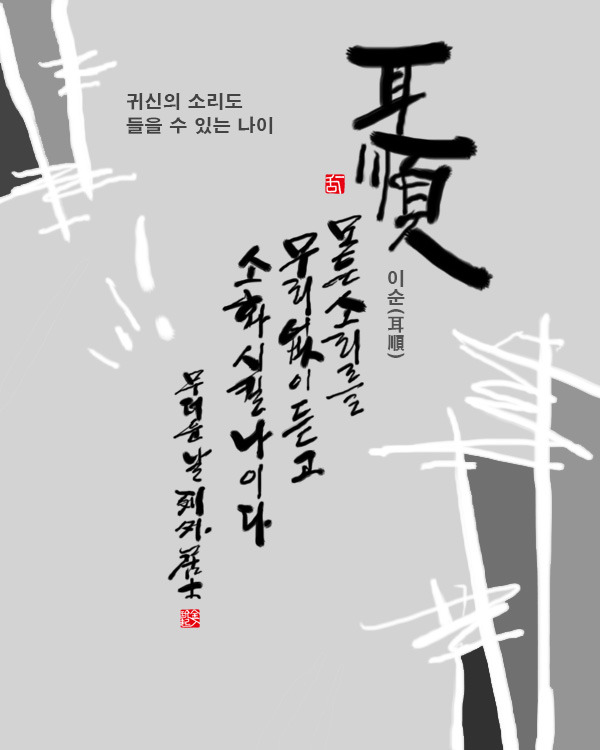 귀신의 소리도
들을 수 있는 나이
耳順
이순(耳順)
모든 소리를
무리 없이 듣고
소화 시킬 나이다
무더운 날 居士